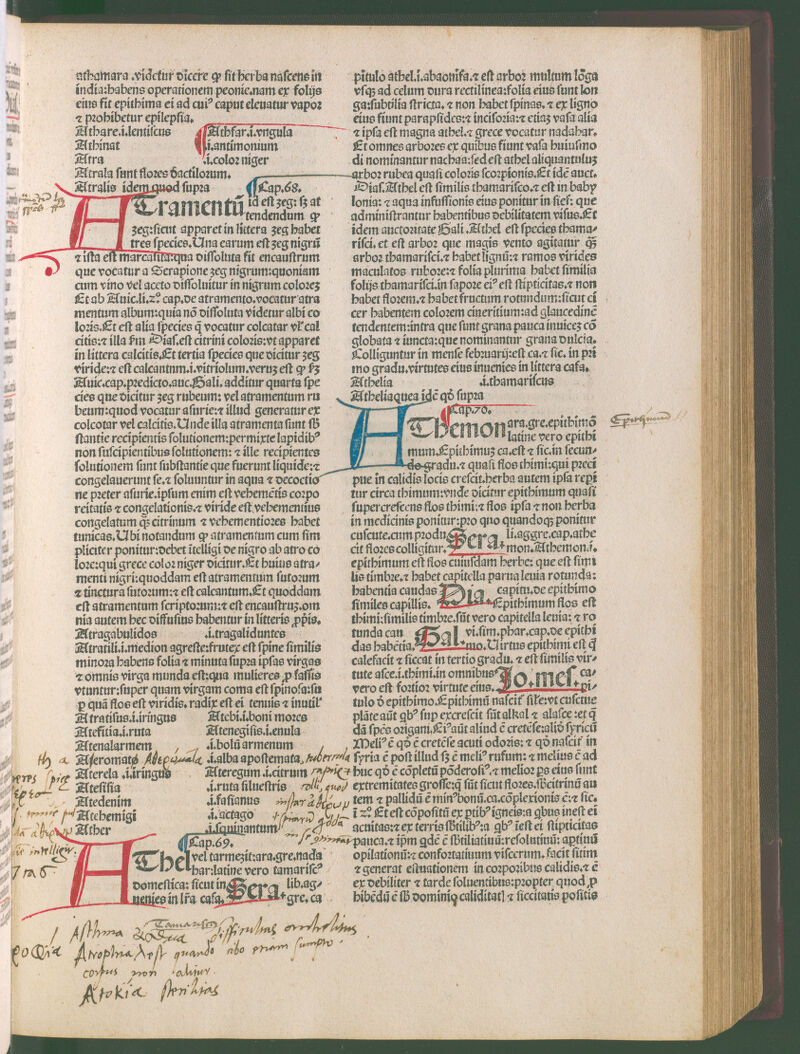 athamara .videtur dicere ꝙ sit herba nascens in
india: habens operationem peonie. nam ex folijs
eius fit epithima ei ad cuiꝰ caput eleuatur vapor
⁊ prohibetur epilepsia.
Athare .i. lenticus
Athfar .i. vngula
Athinat
.i. antimonium
Atra
.i. color niger
Atrala sunt flores dactilorum.
Atralis idem quod supra
Cap. 68.
ATramentū id est zeg: sꝫ at
tendendum ꝙ
zeg: sicut apparet in littera zeg habet
tres species. Una earum est zeg nigrū
⁊ ista est marcasita: qua dissoluta fit encaustrum
que vocatur a Serapione zeg nigrum: quoniam
cum vino vel aceto dissoluitur in nigrum colorez
Et ab Auic. li. 2º. cap. de atramento. vocatur atra
mentum album: quia nō dissoluta videtur albi co
loris. Et est alia species q̄ vocatur colcatar vel cal
citis: ⁊ illa fm Dias. est citrini coloris: vt apparet
in littera calcitis. Et tertia species que dicitur zeg
viride: ⁊ est calcantum .i. vitriolum. veruꝫ est ꝙ
Auic. cap. predicto. auc. Gali. additur quarta spe
cies que dicitur zeg rubeum: vel atramentum ru
beum: quod vocatur asurie: ⁊ illud generatur ex
colcotar vel calcitis. Unde illa atramenta sunt sb
stantie recipientis solutionem: permixte lapidibꝰ
non suscipientibus solutionem: ⁊ ille recipientes
solutionem sunt substantie que fuerunt liquide: ⁊
congelauerunt se. ⁊ soluuntur in aqua ⁊ decoctio
ne preter asurie. ipsum enim est vehemētis corpo
reitatis ⁊ congelationis. ⁊ viride est vehementius
congelatum q̄ꝫ citrinum ⁊ vehementiores habet
tunicas. Ubi notandum ꝙ atramentum cum sim
pliciter ponitur: debet ītelligi de nigro ab atro co
lore: qui grece color niger dicitur. Et huius atra-
menti nigri: quoddam est atramentum sutorum
⁊ tinctura sutorum: ⁊ est calcantum. Et quoddam
est atramentum scriptorum: ⁊ est encaustrū. om
nia autem hec diffusius habentur in litteris ꝓpīs.
Atragabulidos .i. tragaliduntes
Atratili .i. medion agreste: frutex est spine similis
minora habens folia ⁊ minuta supra ipsas virgas
⁊ omnis virga munda est: qua mulieres ꝓ fassis
vtuntur: super quam virgam coma est spinosa: su
ꝑ quā flos est viridis. radix est ei tenuis ⁊ inutilꝰ
Atratisus .i. iringus
Atebi .i. boni mores
Atefitia .i. ruta
Atenegisis .i. enula
Atenalarmem
.i. bolū armenum
Aseromato Αθερώματα
.i. alba apostemata. tubercula
Aterela .i. iringus
Ateregum .i. citrum
Atefisia
.i. ruta siluestris
Atedenim
.i. fasianus
Atebemigi
.i. actago
Ather
.i. squinantum
Cap. 69.
AThel vel tarmezit: ara. gre. nada
har: latine vero tamarisc̄
domestica: sicut in Sera. lib. ag-
uenies in lr̄a casa. gre. ca
pitulo athel .i. abaonisa. ⁊ est arbor multum lōga
vsqꝫ ad celum dura rectilinea: folia eius sunt lon
ga: subtilia stricta. ⁊ non habet spinas. ⁊ ex ligno
eius fiunt parapsides: ⁊ incisoria: ⁊ etiaꝫ vasa alia
⁊ ipsa est magna athel. ⁊ grece vocatur nadahar.
Et omnes arbores ex quibus fiunt vasa huiusmo
di nominantur nachaa: sed est athel aliquantuluꝫ
arbor rubea quasi coloris scorpionis. Et idē auct.
Dias. Athel est similis thamarisco. ⁊ est in baby
lonia: ⁊ aqua infussionis eius ponitur in sief: que
administrantur habentibus debilitatem visus. Et
idem auctoritate Gali. Athel est species thama-
risci. et est arbor que magis vento agitatur q̄ꝫ
arbor thamarisci. ⁊ habet lignū: ⁊ ramos virides
maculatos rubore: ⁊ folia plurima habet similia
folijs thamarisci. in sapore eiꝰ est stipticitas. ⁊ non
habet florem. ⁊ habet fructum rotundum: sicut ci
cer habentem colorem cineritium: ad glaucedinē
tendentem: intra que sunt grana pauca inuicez cō
globata ⁊ iuncta: que nominantur grana dulcia.
Colliguntur in mense februarij: est ca. ⁊ sic. in pri
mo gradu. virtutes eius inuenies in littera casa.
Athelia .i. thamariscus
Atheliaquea idē qd̓ supra
Cap. 70.
AThemon ara. gre. epithimō
latine vero epithi
mum. Epithimuꝫ ca. est ⁊ sic. in secun-
do gradu. ⁊ quasi flos thimi: qui preci
pue in calidis locis crescit. herba autem ipsa repi
tur circa thimum: vnde dicitur epithimum quasi
supercrescens flos thimi: ⁊ flos ipsa ⁊ non herba
in medicinis ponitur: pro quo quandoqꝫ ponitur
cuscute. cum produ Sera. li. aggre. cap. athe
cit flores colligitur. mon. Athemon .i.
epithimum est flos cuiusdam herbe: que est simi
lis timbre. ⁊ habet capitella parua leuia rotunda:
habentia caudas Dia. capitu. de epithimo
similes capillis. Epithimum flos est
thimi: similis timbre. sūt vero capitella leuia: ⁊ ro
tunda cau Gal. vi. sim. phar. cap. de epithi
das habētia. mo. Uirtus epithimi est q̄
calefacit ⁊ siccat in tertio gradu. ⁊ est similis vir-
tute asce .i. thimi. in omnibus Jo. mes. ca-
vero est fortior virtute eius. pi-
tulo d̄ epithimo. Epithimū nascit̄ sič. vt cuscute
plāte aūt qbꝰ sup excrescit sūt alkal ⁊ alasce: et q̄
dā spēs origani. Eiꝰ aūt aliud ē cretēse: aliō syricū
Meliꝰ ē qd̓ ē cretēse acuti odoris: ⁊ qd̓ nascit̄ in
syria ē post illud sꝫ ē meliꝰ rufum: ⁊ melius ē ad
huc qd̓ ē cōpletū pōderosiꝰ. ⁊ melior ps eius sunt
extremitates grosse: q̄ sūt sicut flores. sb̄citrinū au
tem ⁊ pallidū ē minꝰ bonū. ca. cōplexionis ē: ⁊ sic.
ī 2º. Et est cōpositū ex ptibꝰ igneis: a qbus inest ei
acuitas: ⁊ ex terris sb̄tilibꝰ: a qbꝰ īest ei stipticitas
pauca. ⁊ ip̄m qdē ē sb̄tiliatiuū: resolutiuū: aptiuū
opilationū: ⁊ confortatiuum viscerum. facit sitim
⁊ generat estuationem in corporibus calidis. ⁊ ē
ex debiliter ⁊ tarde soluentibus: propter quod ꝓ
hibēdū ē sb̄ dominio caliditat] ⁊ siccitatis positis
Epithimum
Tamariscus
Asthma difficultas anhelitus
Atrophia est quando cibo etiam sumpto
corpus non alitur.
Atokia sterilitas